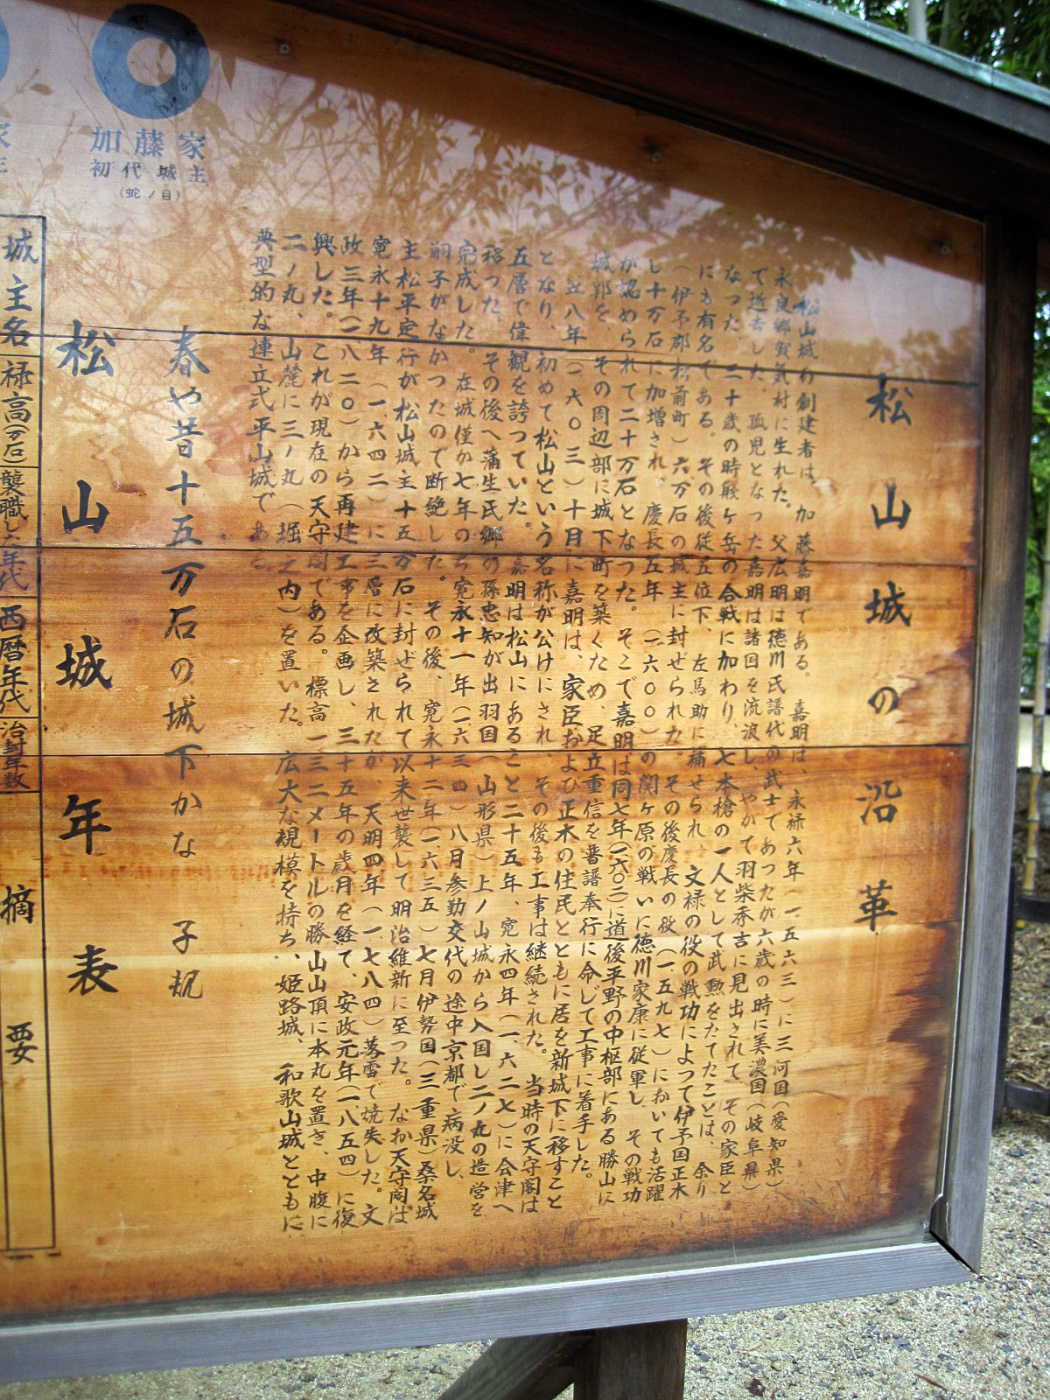 松山城の沿革
松山城の創建者は、加藤嘉明である。嘉明は、永禄六年(一五六三)に三河国(愛知県)
永良郷賀気村に生れた。父広明は徳川氏譜代の武士であつたが六歳の時に美濃国(岐阜県)
で逝去した。孤児となつた嘉明は諸国を流浪し、やがて羽柴秀吉に見出されて、その家臣と
なつた。二十歳の時賎ケ岳の合戦に加わり、七本槍の一人として武勲をたてたことは、余り
にも有名である。その後従五位下、左馬助に補せられ、文禄の役の戦功によつて伊予国正木
(伊予郡松前町)六万石の城主に封ぜられた。その後慶長の役(一五九七)においても活躍
し十万石に加増され、慶長五年(一六〇〇)の関ヶ原の戦いに徳川家康に従軍し、その戦功
が認められて二十万石となつた。そこで嘉明は同七年(一六〇二)に道後平野の中枢部にある勝山に
城郭を、その周辺部に城下町を築くため、足立重信を普譜奉行に命じて工事に着手した。
翌八年(一六〇三)十月に嘉明は、家臣および正木の住民とともに居を新城下に移すこと
となり、初めて松山という名称が公けにされ、その後も工事は継続された。当時の天守閣は
五層で偉観を誇つていた。嘉明は松山にあること二十五年、寛永四年(一六二七)に会津へ
移つた。その後へ蒲生氏郷の孫忠知が出羽国(山形県)上ノ山城から入国し二ノ丸の造営を
完成した。在城僅か七年の 寛永十一年(一六三四)八月参勤交代の途中京都で病没し、
嗣子がなかつたので断絶した。その後、寛永十二年(一六三五)七月伊勢国(三重県)桑名城
主松平定行が松山城主十五万石に封ぜられて以来世襲して明治維新に至つた。なお天守閣は
寛永十九年(一六四二)に三層に改築されたが、天明四年(一七八四)落雷で焼失した。文
政三年(一八二〇)から再建工事を企画し、三十五年の歳月を経て、安政元年(一八五四)に復
興した。これが現在の天守閣である。標高一三二メートルの勝山山頂に本丸を置き、中腹に
二ノ丸、山麓に三ノ丸(堀之内)を置いた。広大な規模を持ち、姫路城、和歌山城とともに
典型的な連立式平山城である
春や昔十五万石の城下かな 子規
加藤家
初代城主
(蛇ノ目)
松山城年表
城主名
禄高(万石)
襲職した年代
西暦年代
治封年数
摘要
家
主